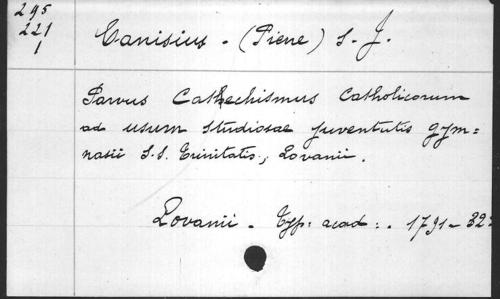 295
221
1
Canisius - (Pierre) S. J.
Parvus Catechismus Catholicorum
ad usum studiosae juventutis gym=
nasii S.S. Trinitatis, Lovanii.
Lovanii - Typ: acad: - 1791 - 32: